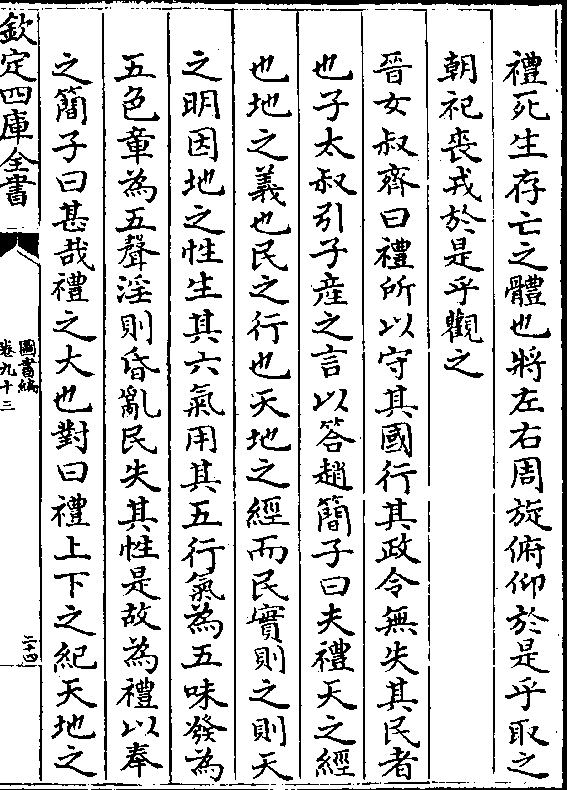 禮死生存亡之體也將左右周旋俯仰於是乎取之
朝祀喪戎於是乎觀之
晉女叔齊曰禮所以守其國行其政令無失其民者
也子太叔引子産之言以答趙簡子曰夫禮天之經
也地之義也民之行也天地之經而民實則之則天
之明因地之性生其六氣用其五行氣為五味發為
五色章為五聲淫則昏亂民失其性是故為禮以奉
之簡子曰甚哉禮之大也對曰禮上下之紀天地之
欽定四庫全書
圖書編
卷九十三
二十四